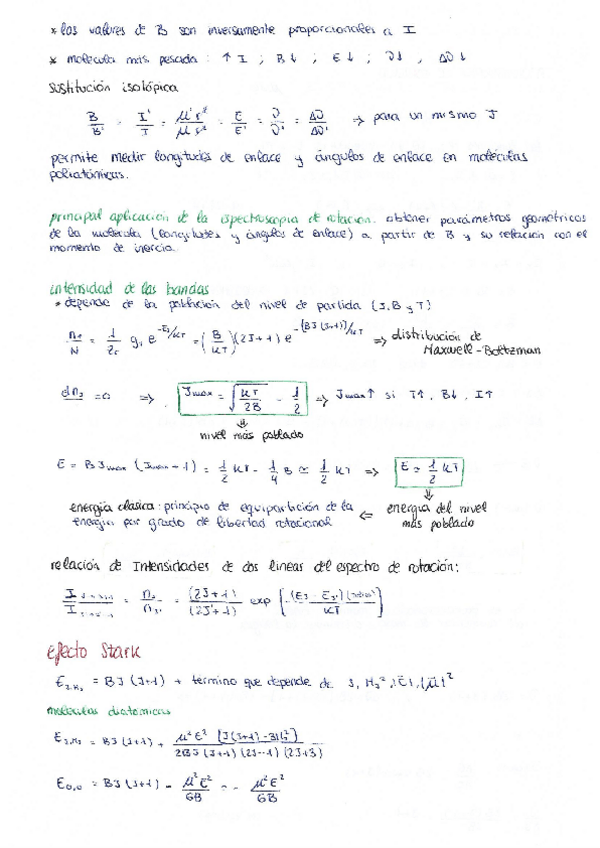 * los valores de B son inversamente proporcionales a I
* molécula más pesada : ↑ I ; B↓ ; E↓ ; ν̄↓ , Δν̄ ↓
sustitución isotópica
B/B' = I'/I = μ'r²/μr² = E/E' = ν̄/ν̄' = Δν̄/Δν̄' ⇒ para un mismo J
permite medir longitudes de enlace y ángulos de enlace en moléculas
poliatómicas.
principal aplicación de la espectroscopia de rotación: obtener parámetros geométricos
de la molécula (longitudes y ángulos de enlace) a partir de B y su relación con el
momento de inercia.
intensidad de las bandas
* depende de la población del nivel de partida (J, B y T)
= (B/KT)(2J+1) e^-(BJ(J+1))/KT ⇒ distribución de
Maxwell-Boltzman
dnJ = 0 ⇒ Jmax = √(KT/2B) - 1/2 ⇒ Jmax↑ si T↑, B↓, I↑
nivel más poblado
E = BJmax (Jmax+1) = 1/2 KT - 1/4 B ≃ 1/2 KT ⇒ E ≃ 1/2 KT
energía clásica: principio de equipartición de la
energía por grado de libertad rotacional ⇐ energía del nivel
más poblado
relación de Intensidades de dos lineas del espectro de rotación:
= nJ/nJ' = (2J+1)/(2J'+1) exp
efecto Stark
= BJ(J+1) + termino que depende de J,
moléculas diatómicas
= BJ(J+1) +
E0,0 = BJ(J+1) - μ²E²/6B = - μ²E²/6B